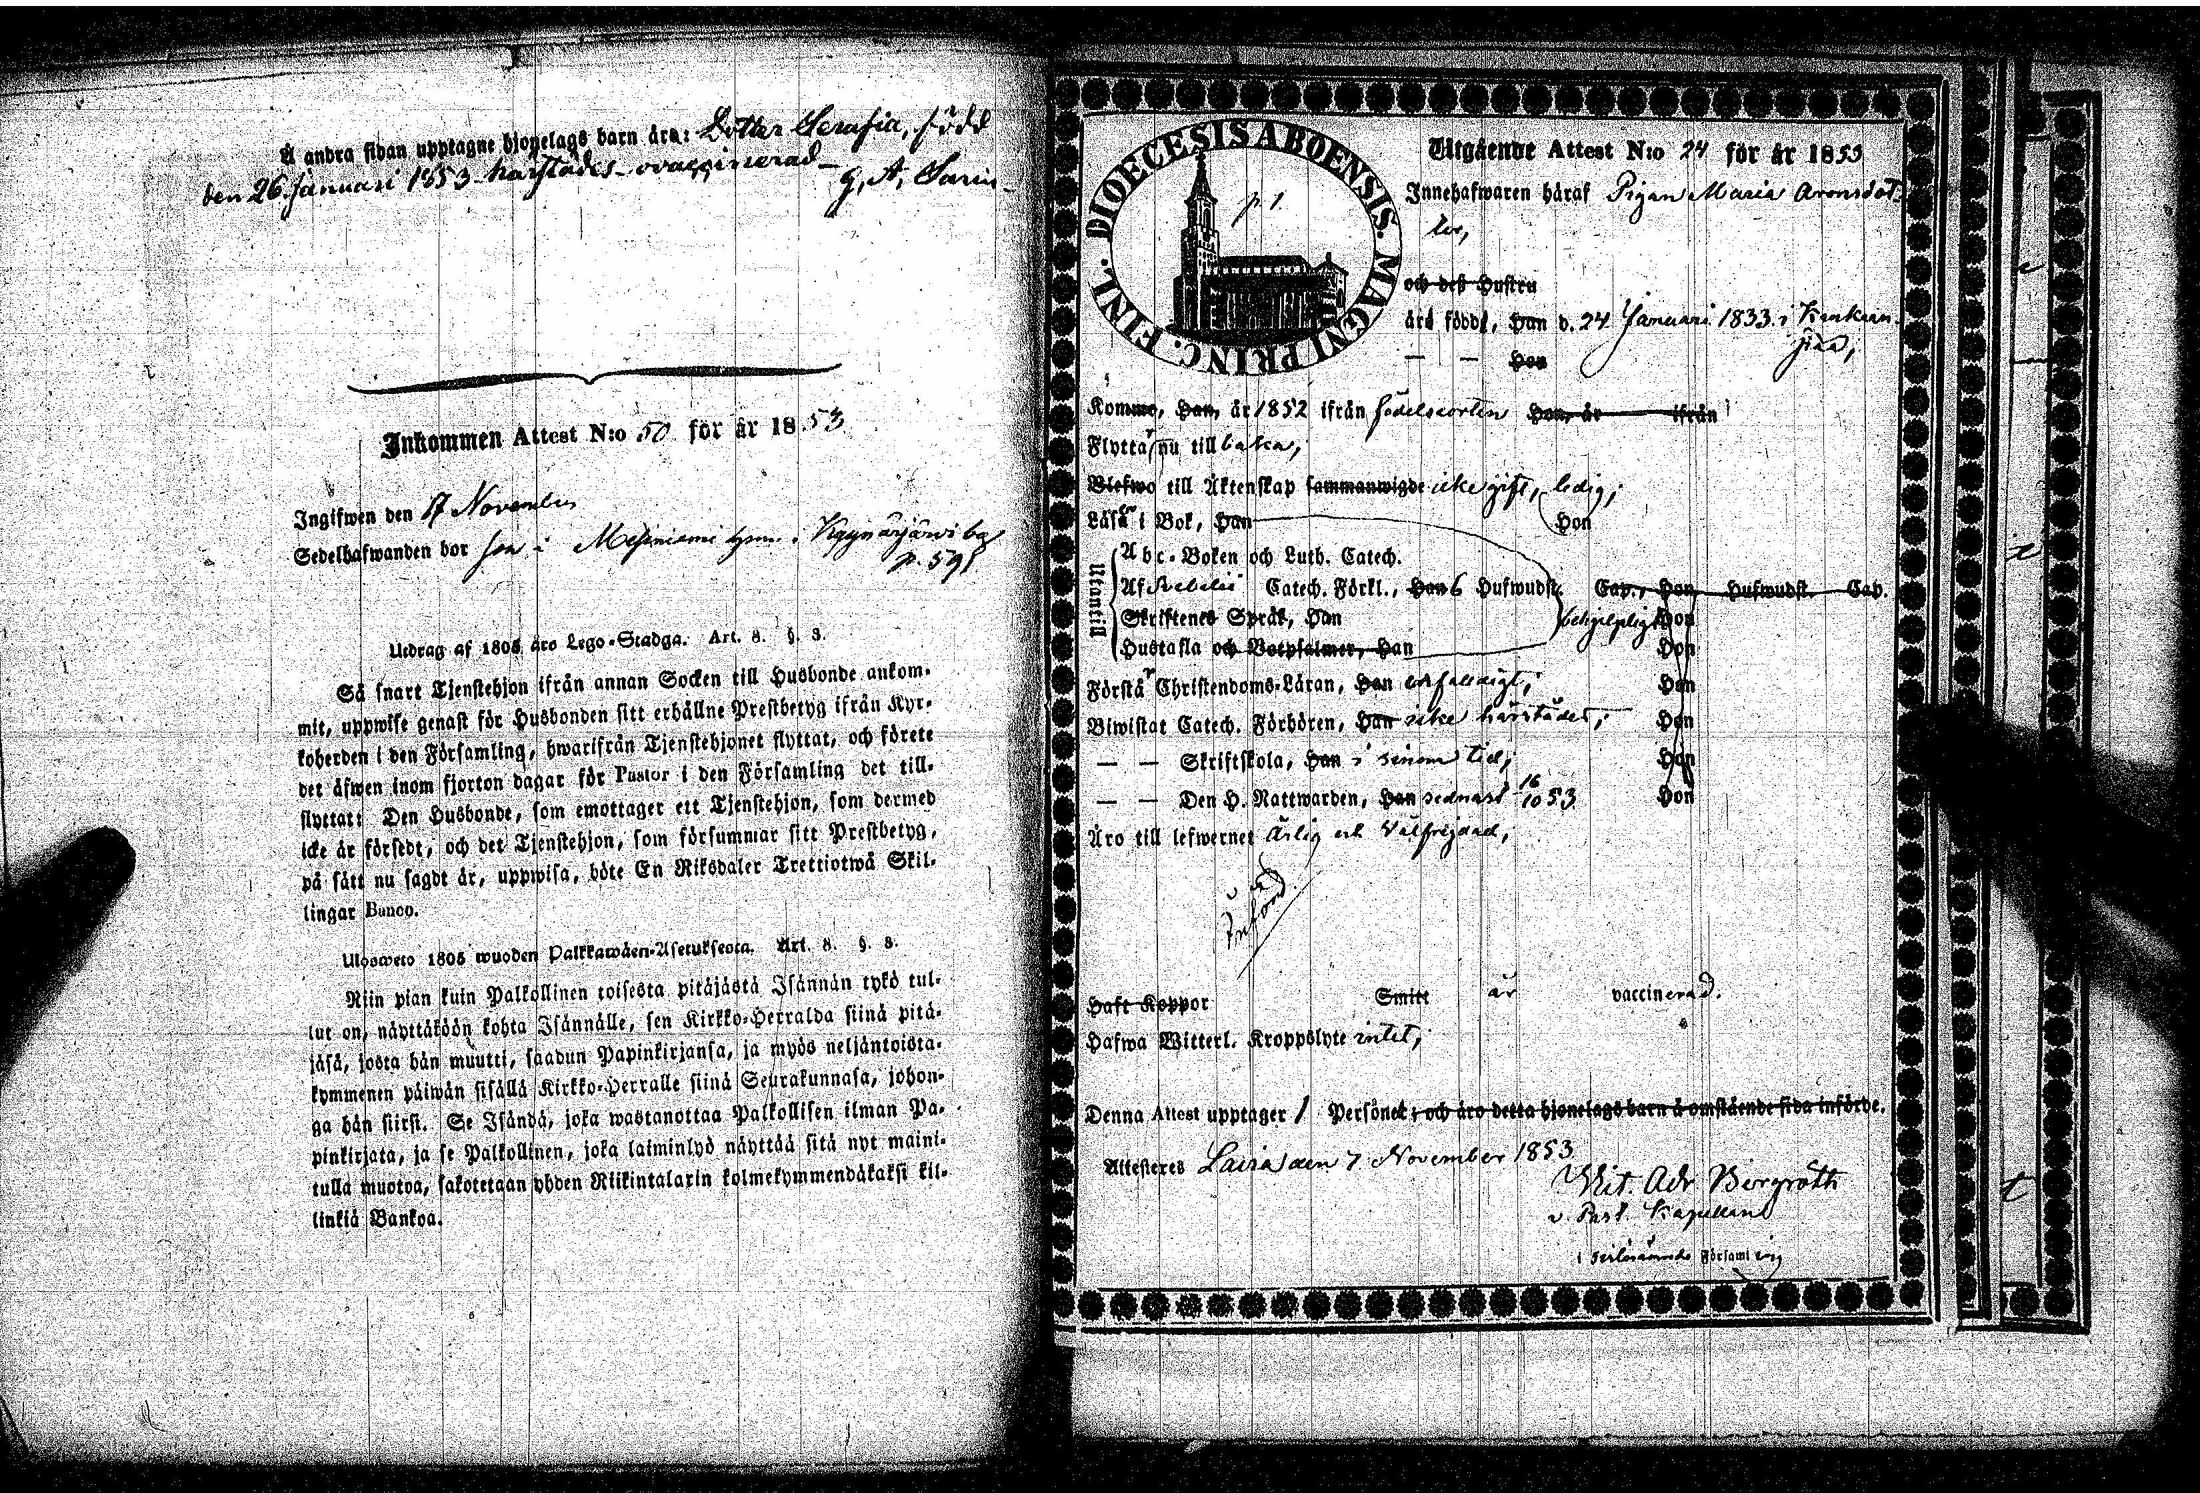 Å andra sidan upptagne hjonelags barn äro: Dotter Serafia, född
den 26 Januari 1853 härstädes ovaccinerad –
G. A.
Inkommen Attest N:o 50 för år 1853
Ingifwen den 17 November
Sedelhafwanden bor hos i
p. 591
Utdrag af 1805 års Lego-Stadga. Art. 8. §. 3.
Så snart Tjenstehjon ifrån annan Socken till Husbonde ankom-
mit, uppwise genast för Husbonden sitt erhållne Prestbetyg ifrån Kyr-
koherden i den Församling, hwarifrån Tjenstehjonet flyttat, och förete
det äfwen inom fjorton dagar för Pastor i den Församling det till-
flyttat: Den Husbonde, som emottager ett Tjenstehjon, som dermed
icke är försedt, och det Tjenstehjon, som försummar sitt Prestbetyg,
på sätt nu sagdt är, uppwisa, böte En Riksdaler Trettiotwå Skil-
lingar Banco.
Ulosweto 1805 wuoden Palkkawäen-Asetuksesta. Art. 8. §. 3.
Niin pian kuin Palkollinen toisesta pitäjästä Isännän tykö tul-
lut on, näyttäköön kohta Isännälle, sen Kirkko-Herralda siinä pitä-
jäsä, josta hän muutti, saadun Papinkirjansa, ja myös neljäntoista-
kymmenen päiwän sisällä Kirkko-Herralle siinä Seurakunnasa, johon-
ga hän siirsi. Se Isändä, joka wastanottaa Palkollisen ilman Pa-
pinkirjata, ja se Palkollinen, joka laiminlyö näyttää sitä nyt maini-
tulla muotoa, sakotetaan yhden Riikintalarin kolmekymmendäkaksi kil-
linkiä Bankoa.
DIOECESIS ABOENSIS. MAGNI PRINC. FINL.
p. 1.
Utgående Attest N:o 24 för år 1853
Innehafwaren häraf Pigan Maria Aronsdot-
ter,
och dess Hustru
äro födde, Han d. 24 Januari 1833 i Kankaan-
pää,
— — Hon
Kommo, Han, år 1852 ifrån födelseorten Hon, år ifrån
Flyttar nu till baka,
Blefwo till Äktenskap sammanwigde icke gift, ledig;
Läsa i Bok, Han Hon
Utantill
Abc-Boken och Luth. Catech.
Af Catech. Förkl., Han 6 Hufwudst. Cap., Hon Hufwudst. Cap.
Skriftenes Språk, Han behjelpligt Hon
Hustafla och Botpsalmer, Han Hon
Förstå Christendoms-Läran, Han enfaldigt; Hon
Biwistat Catech. Förhören, Han icke härstädes; Hon
— — Skriftskola, Han i sinom tid; Hon
— — Den H. Nattwarden, Han sednast 16/10 53 Hon
Äro till lefwernet ärlig och välfrejdad;
Införd
Haft Koppor Smitt är vaccinerad.
Hafwa Witterl. Kroppslyte intet;
Denna Attest upptager 1 Personer; och äro detta hjonelags barn å omstående sida införde.
Attesteres Lavia den 7 November 1853
Vit. Adr Bergroth
v. Past. Kapellan
i Församling